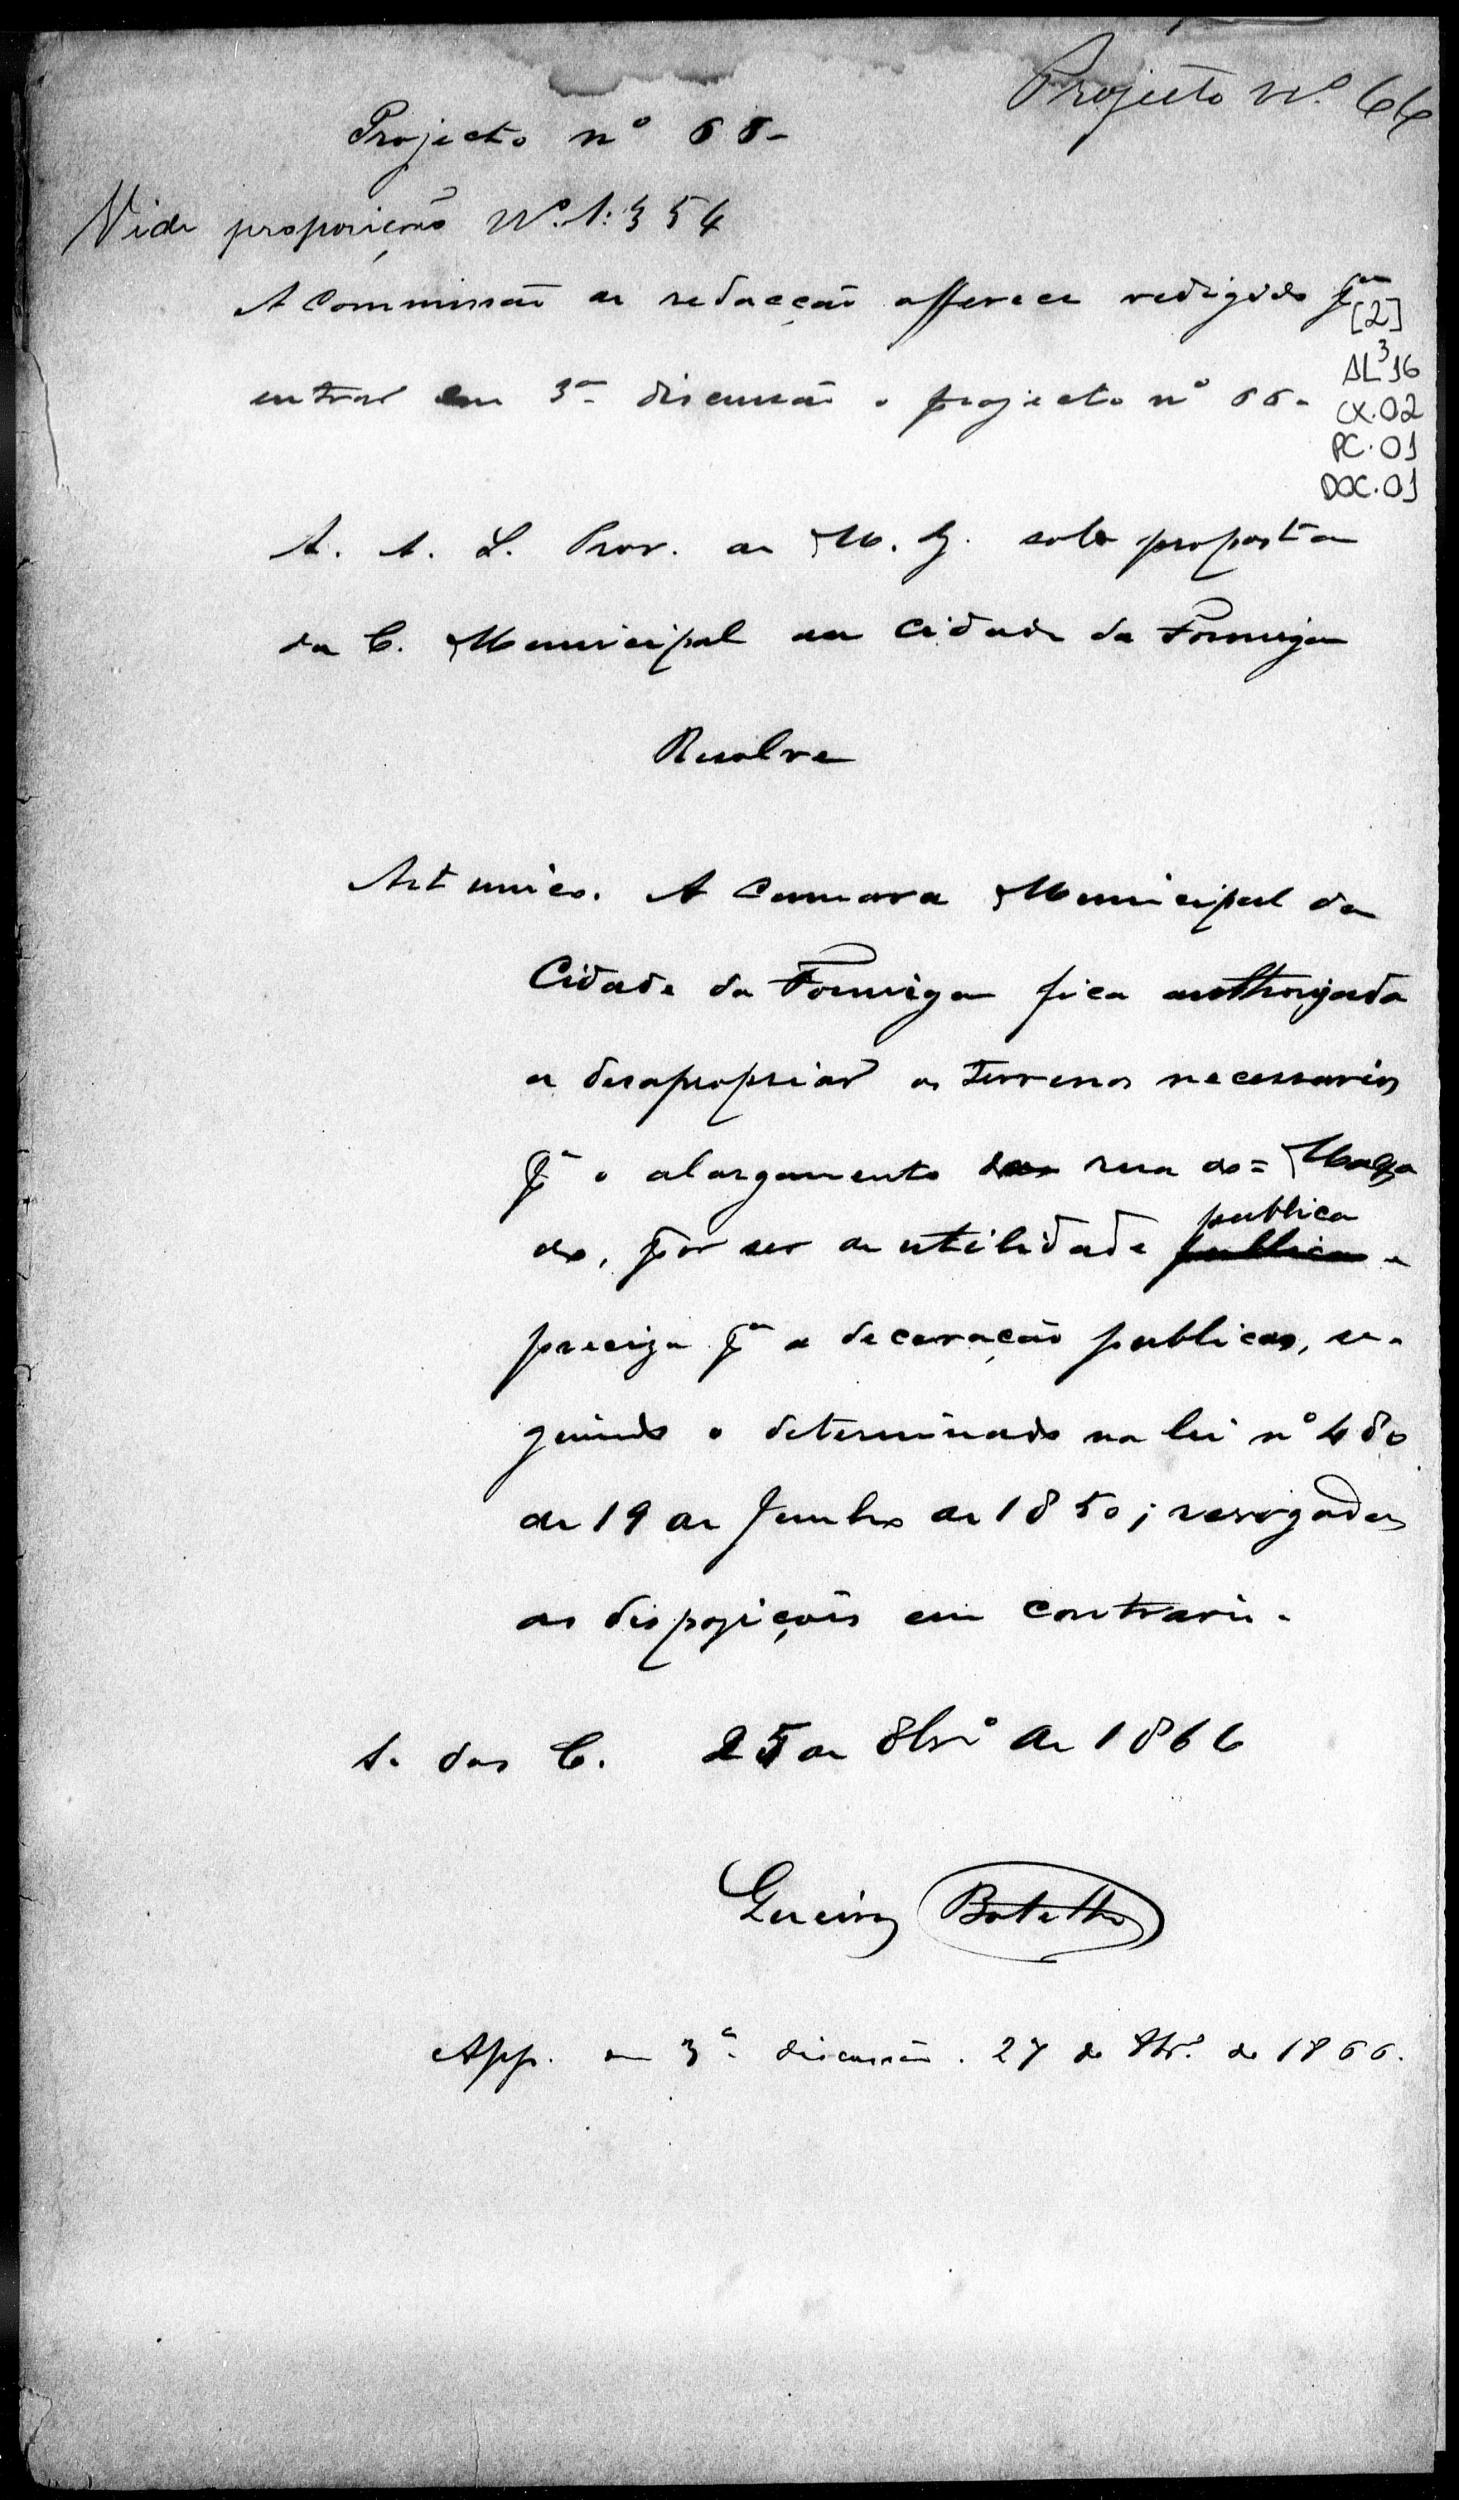 Projecto Nº. 66
Projecto nº 66-
Vide proposição Nº. 1:354
A Commissão de redacção offerece redigido pª
[2]
AL³16
CX.02
PC.01
DOC.01
entrar em 3ª discussão o projecto nº 66-
A. A. L. Prov. de M. G. sob proposta
da C. Municipal da Cidade da Formiga
Resolve
Art unico. A Camara Municipal da
Cidade da Formiga fica authorizada
a desapropriar os terrenos necessarios
pª o alargamento da rua do=
do, por ser de utilidade publica publica e
preciza pª a decoração publica, se-
guindo o determinado na lei nº 480
de 19 de Junho de 1850; revogadas
as dispozições em contrario.
S. das C. 25 de 8brº de 1866
Botelho
App. em 3ª discussão. 27 de 8brº. de 1866.